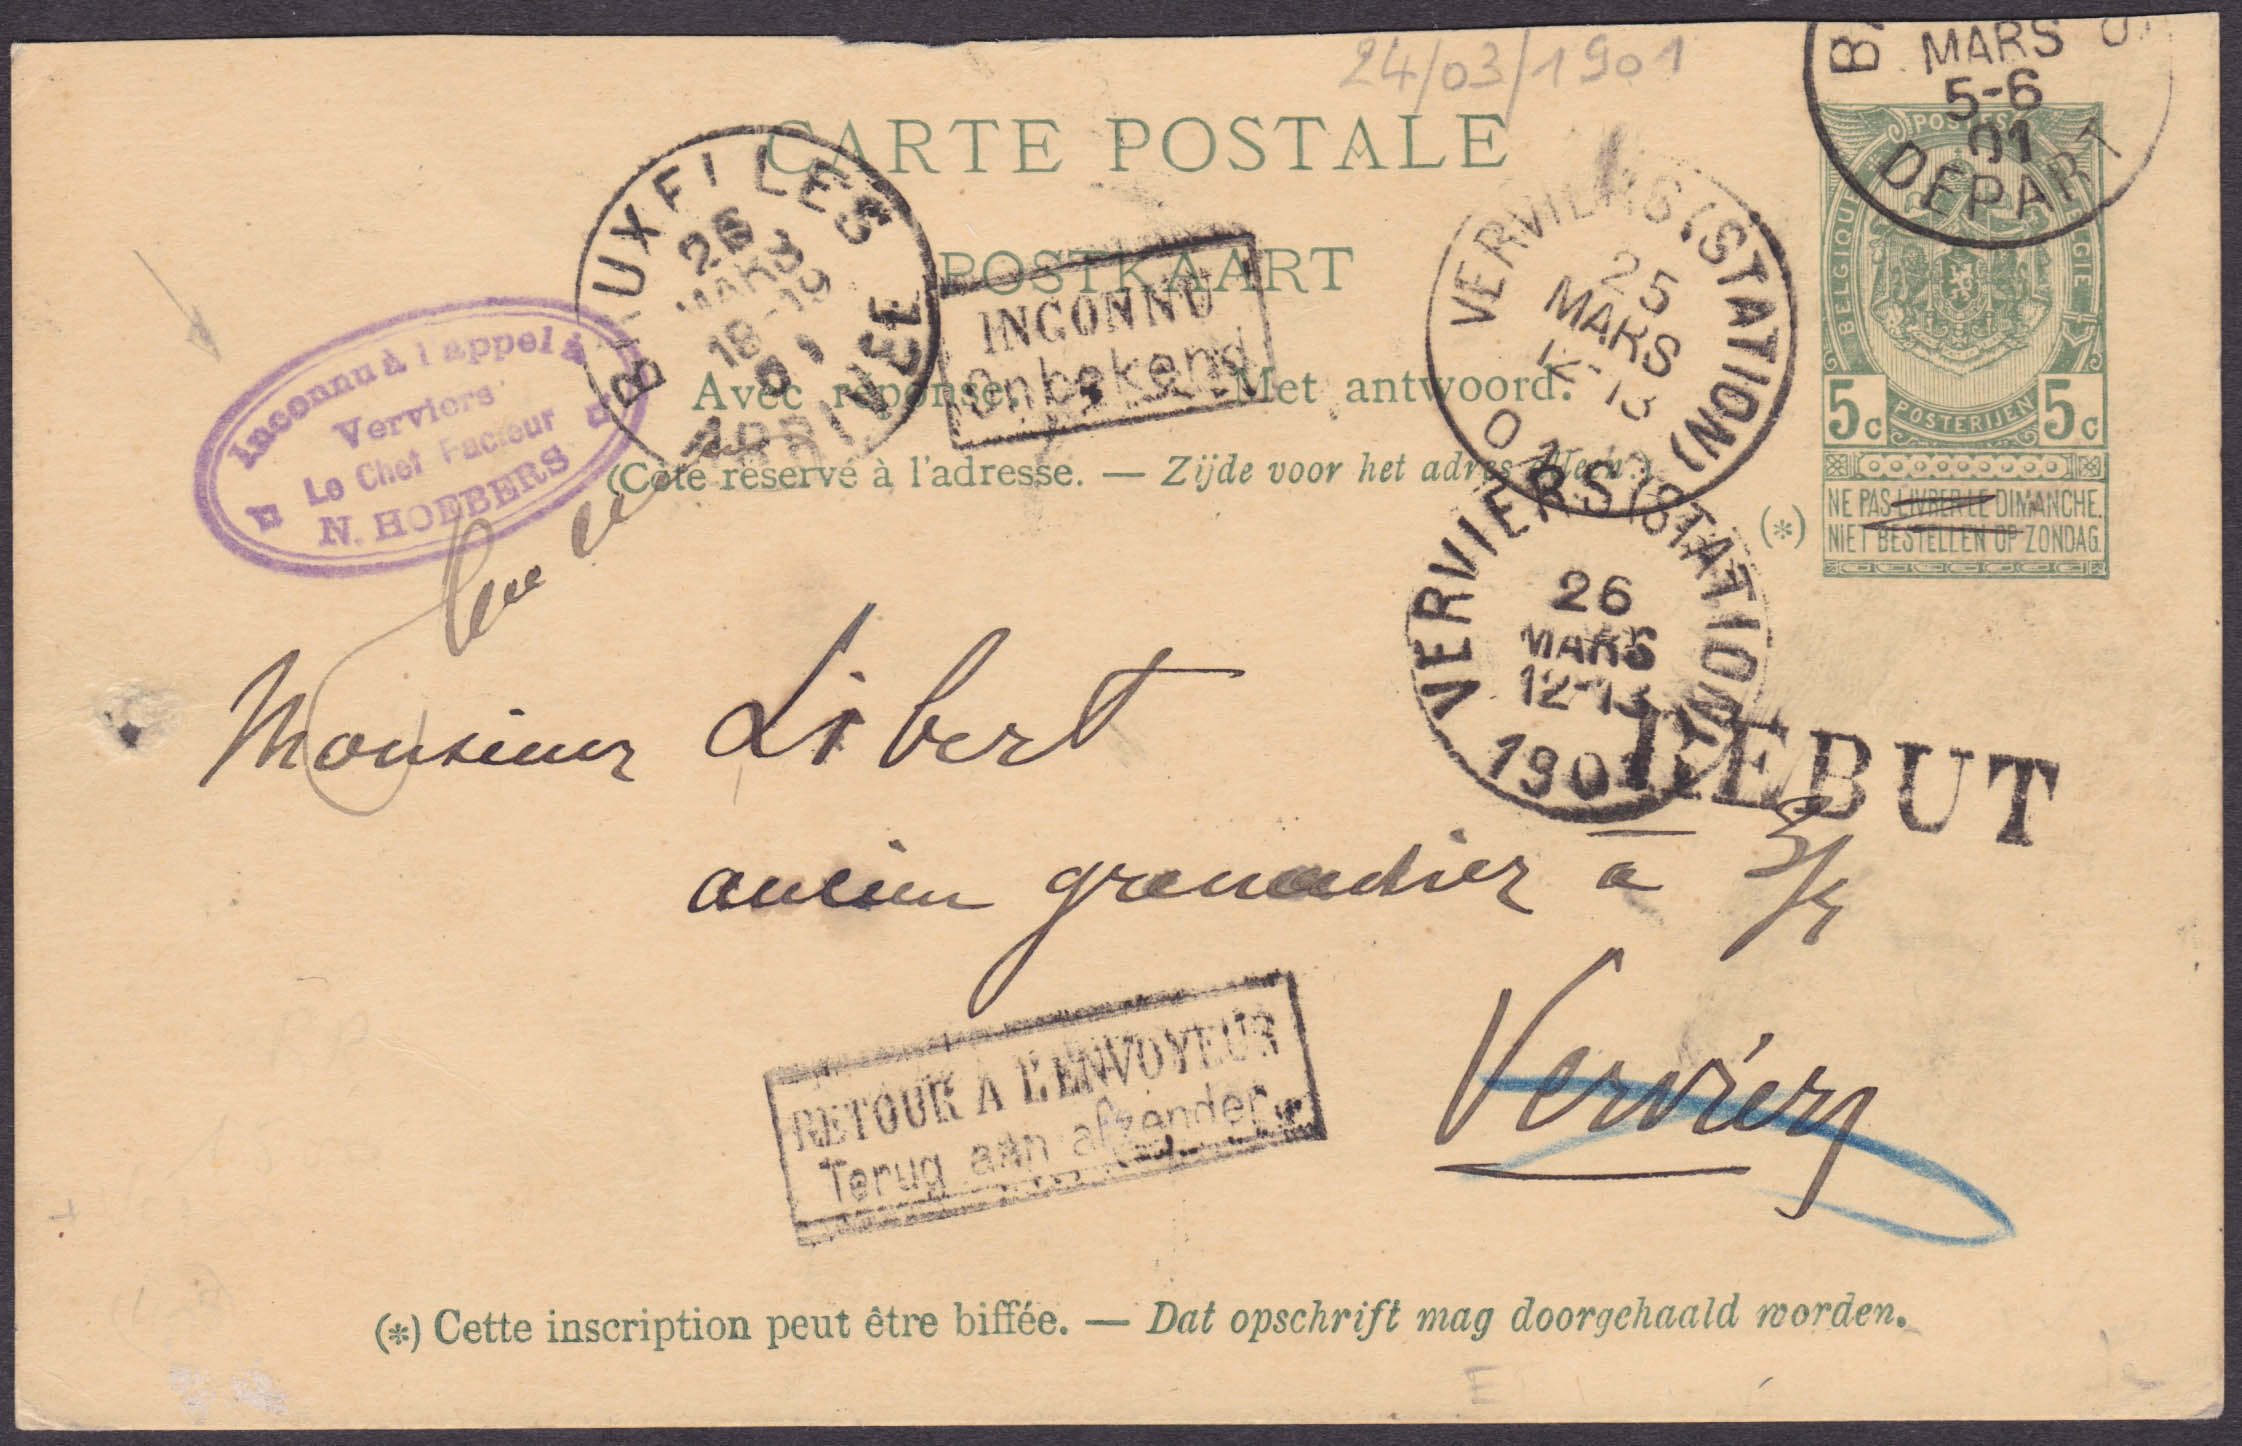 24/03/1901
MARS
5-6
01
DEPART
CARTE POSTALE
POSTKAART
Avec réponse. Met antwoord.
(Côté réservé à l'adresse. — Zijde voor het adres
BRUXELLES
26
MARS
18-19
ARRIVEE
INCONNU
Onbekend
VERVIERS (STATION)
25
MARS
VERVIERS (STATION)
26
MARS
12-13
1901
POSTES
BELGIQUE
POSTERIJEN
5c 5c
(*)
NE PAS LIVRER LE DIMANCHE.
NIET BESTELLEN OP ZONDAG.
Inconnu à l'appel à
Verviers
Le Chef Facteur
N. HOEBERS
REBUT
Monsieur Libert
ancien grenadier a
Verviers
RETOUR A L'ENVOYEUR
Terug aan afzender
(*) Cette inscription peut être biffée. — Dat opschrift mag doorgehaald worden.
E